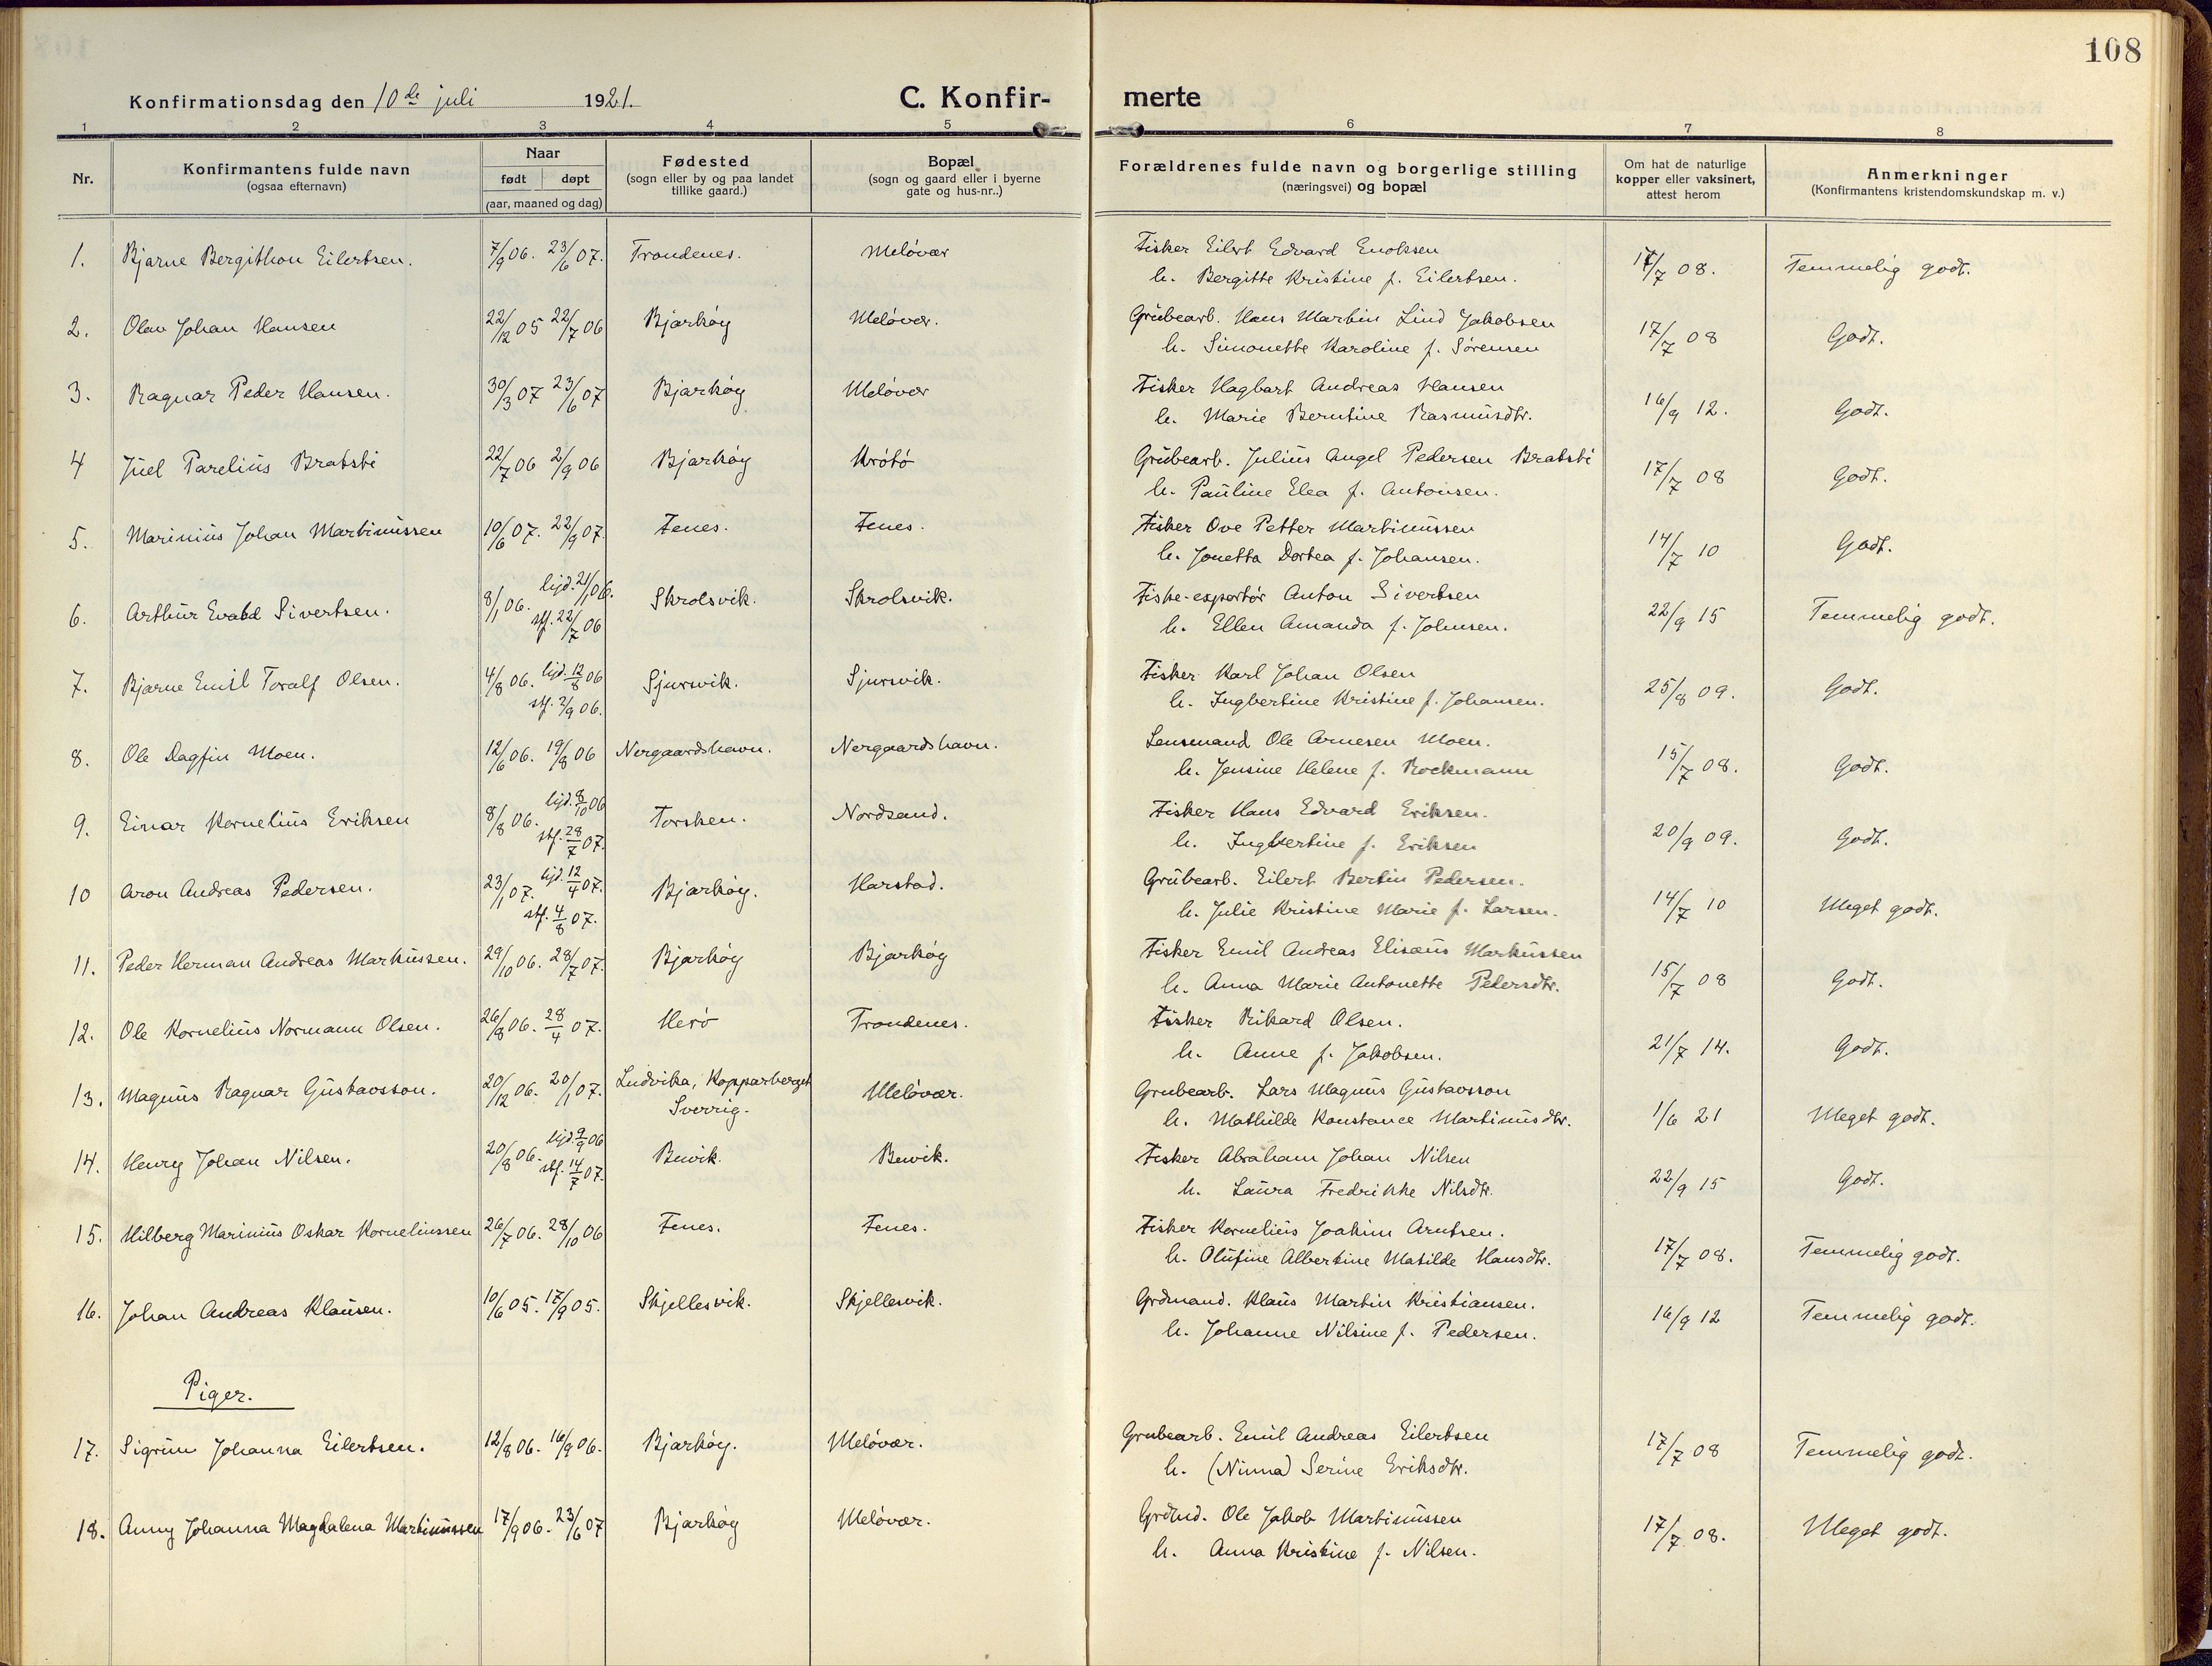 108
Konfirmationsdag den 10de juli 1921.
C. Konfir-
merte
1 2 3 4 5 6 7 8
Nr.
Konfirmantens fulde navn
(ogsaa efternavn)
Naar
født døpt
(aar, maaned og dag)
Fødested
(sogn eller by og paa landet
tillike gaard.)
Bopæl
(sogn og gaard eller i byerne
gate og hus-nr..)
Forældrenes fulde navn og borgerlige stilling
(næringsvei) og bopæl
Om hat de naturlige
kopper eller vaksinert,
attest herom
Anmerkninger
(Konfirmantens kristendomskundskap m. v.)
1. Bjarne Bergithon Eilertsen. 7/9 06. 23/6 07. Trondenes. Meløvær Fisker Eilert Edvard Enoksen 17/7 08. Temmelig godt.
h. Bergitte Kristine f. Eilertsen.
2. Olav Johan Hansen 22/12 05 22/7 06 Bjarkøy Meløvær. Grubearb. Hans Martin Lind Jakobsen 17/7 08 Godt.
h. Simonette Karoline f. Sørensen
3. Ragnar Peder Hansen. 30/3 07 23/6 07 Bjarkøy Meløvær Fisker Hagbart Andreas Hansen 16/9 12. Godt.
h. Marie Berntine Rasmusdtr.
4 Juel Parelius Bratsti 22/7 06 2/9 06 Bjarkøy Krøtø Grubearb. Julius Angel Pedersen Bratsti 17/7 08 Godt.
h. Pauline Elea f. Antonsen.
5. Marinius Johan Martinussen 10/6 07. 22/9 07. Fenes. Fenes. Fisker Ove Petter Martinussen 14/7 10 Godt.
h. Jonetta Dortea f. Johansen.
6. Arthur Evald Sivertsen. 8/1 06. hjd. 21/1 06. Skrolsvik. Skrolsvik. Fiske-exportør Anton Sivertsen 22/9 15 Temmelig godt.
stf. 22/7 06 h. Ellen Amanda f. Johnsen.
7. Bjarne Emil Toralf Olsen. 4/8 06. hjd. 12/8 06 Sjursvik. Sjursvik. Fisker Karl Johan Olsen 25/8 09. Godt.
stf. 2/9 06. h. Ingbertine Kristine f. Johansen.
8. Ole Dagfin Moen. 12/6 06. 19/8 06 Nergaardshavn. Nergaardshavn. Lensmand Ole Arnesen Moen. 15/7 08. Godt.
h. Jensine Helene f. Rockmann
9. Einar Kornelius Eriksen 8/8 06. hjd. 8/10 06 Torsken. Nordsand. Fisker Hans Edvard Eriksen. 20/9 09. Godt.
stf. 28/7 07. h. Ingbertine f. Eriksen
10 Aron Andreas Pedersen. 23/1 07. hjd. 12/4 07. Bjarkøy. Harstad. Grubearb. Eilert Bertin Pedersen. 14/7 10 Meget godt.
stf. 4/8 07. h. Julie Kristine Marie f. Larsen.
11. Peder Herman Andreas Markussen. 29/10 06. 28/7 07. Bjarkøy Bjarkøy Fisker Emil Andreas Elisæus Markussen 15/7 08 Godt.
h. Anna Marie Antonette Pedersdtr.
12. Ole Kornelius Normann Olsen. 26/8 06. 28/4 07. Herø Trondenes. Fisker Rikard Olsen. 21/7 14. Godt.
h. Anne f. Jakobsen.
13. Magnus Ragnar Gustavsson. 20/12 06. 20/1 07. Ludvika, Kopparberget Meløvær. Grubearb. Lars Magnus Gustavsson 1/6 21 Meget godt.
Sverrig. h. Mathilde Konstance Martinusdtr.
14. Henry Johan Nilsen. 20/8 06. hjd. 9/9 06 Buvik. Buvik. Fisker Abraham Johan Nilsen 22/9 15 Godt.
stf. 14/7 07. h. Laura Fredrikke Nilsdtr.
15. Hilberg Marinius Oskar Korneliussen 26/7 06. 28/10 06 Fenes. Fenes. Fisker Kornelius Joakim Arntsen. 17/7 08. Temmelig godt.
h. Olufine Albertine Matilde Hansdtr.
16. Johan Andreas Klausen. 10/6 05. 17/9 05. Skjellesvik. Skjellesvik. Grdmand. Klaus Martin Kristiansen. 16/9 12 Temmelig godt.
h. Johanne Nilsine f. Pedersen.
Piger.
17. Sigrun Johanna Eilertsen. 12/8 06. 16/9 06. Bjarkøy. Meløvær. Grubearb. Emil Andreas Eilertsen 17/7 08 Temmelig godt.
h. (Ninna) Serine Eriksdtr.
18. Anny Johanna Magdalena Martinussen 17/9 06. 23/6 07 Bjarkøy Meløvær. Grdmd. Ole Jakob Martinussen 17/7 08. Meget godt.
h. Anna Kristine f. Nilsen.